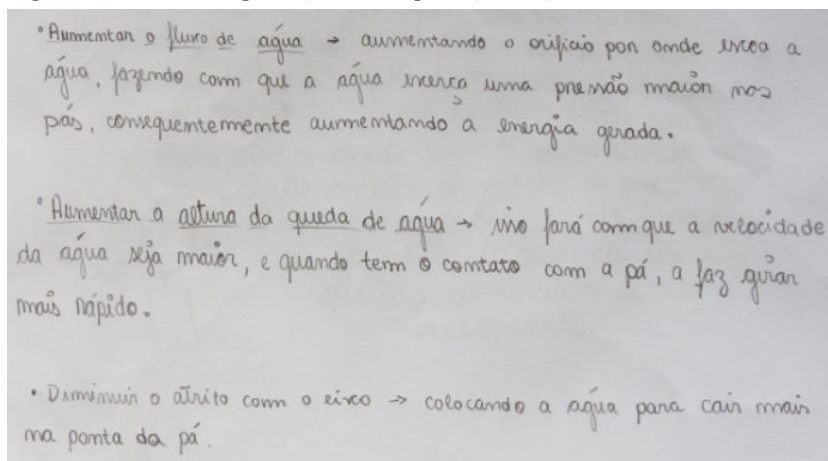 • Aumentar o fluxo de água → aumentando o orifício por onde escoa a
água, fazendo com que a água exerça uma pressão maior nas
pás, consequentemente aumentando a energia gerada.
• Aumentar a altura da queda de água → isso fará com que a velocidade
da água seja maior, e quando tem o contato com a pá, a faz girar
mais rápido.
• Diminuir o atrito com o eixo → colocando a água para cair mais
na ponta da pá.